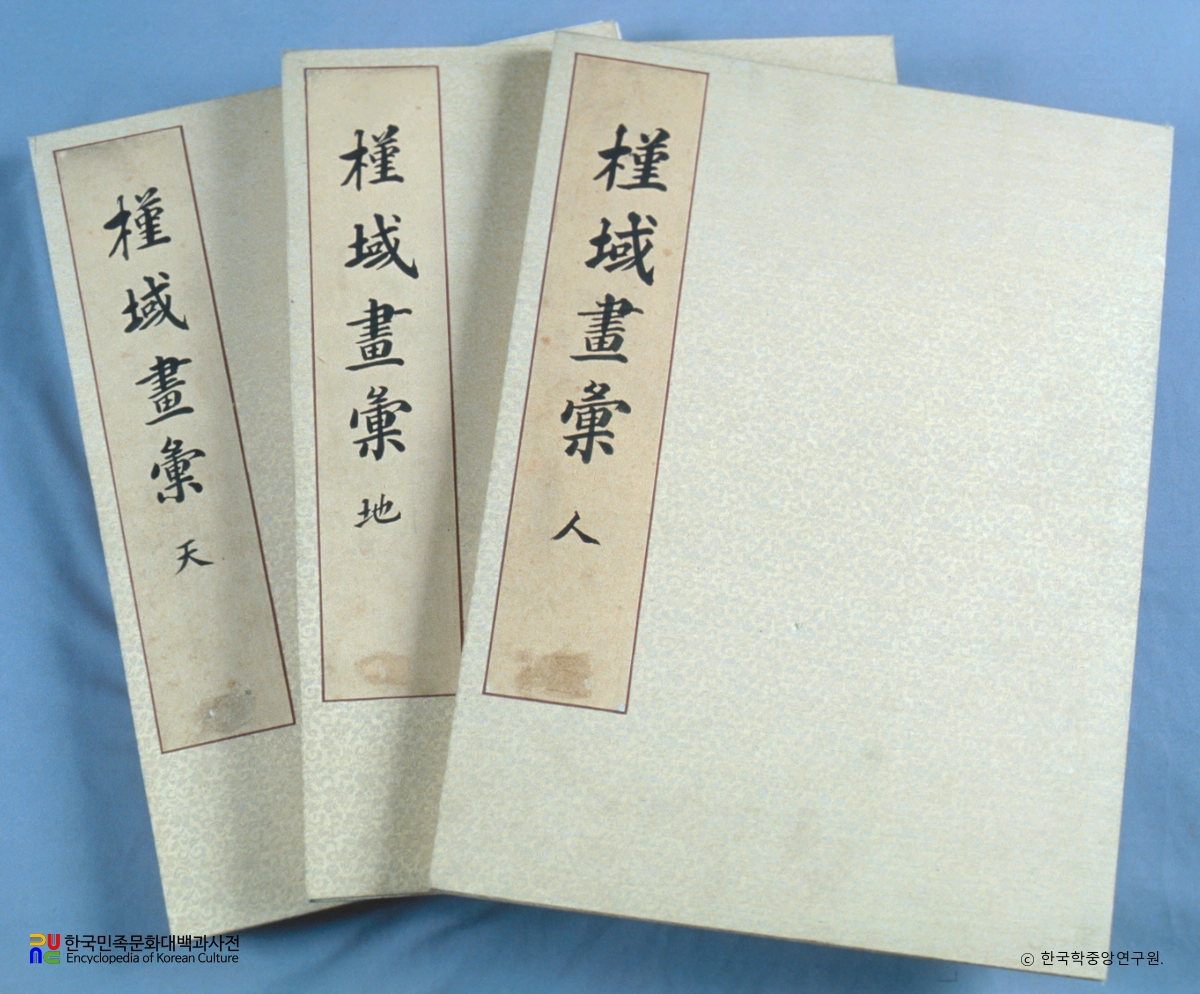 槿域畫彙 天
槿域畫彙 地
槿域畫彙 人
한국민족문화대백과사전
Encyclopedia of Korean Culture
ⓒ 한국학중앙연구원.